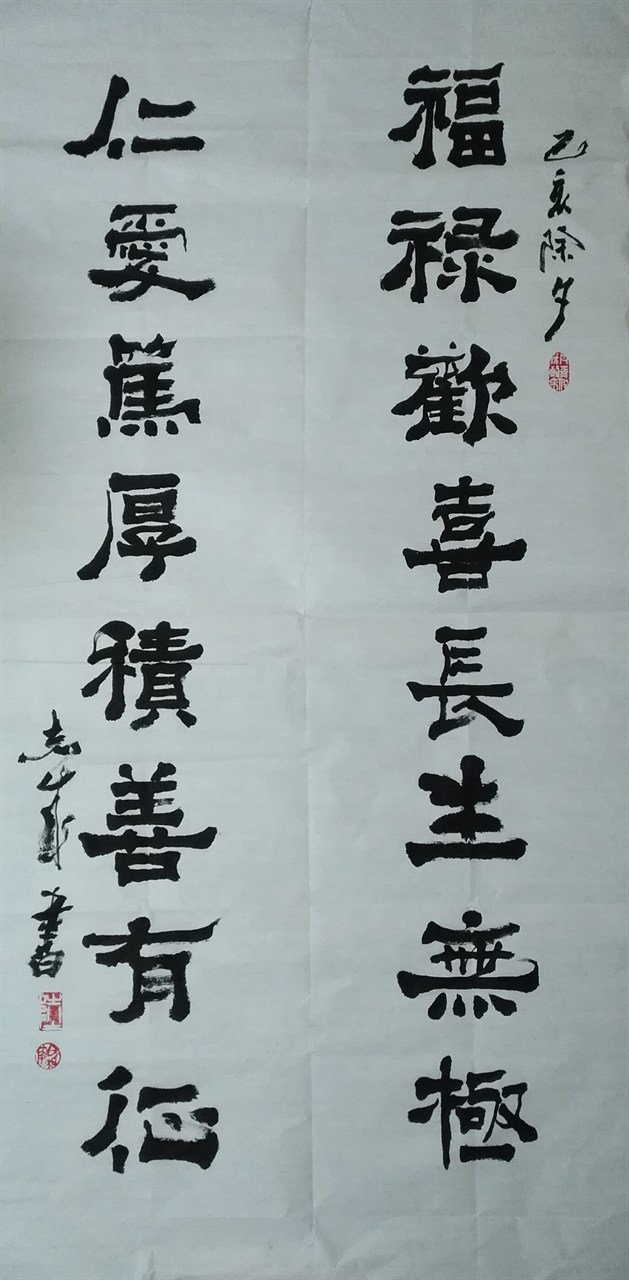 己亥除夕
福禄歡喜長生無極
仁愛篤厚積善有征
志 書